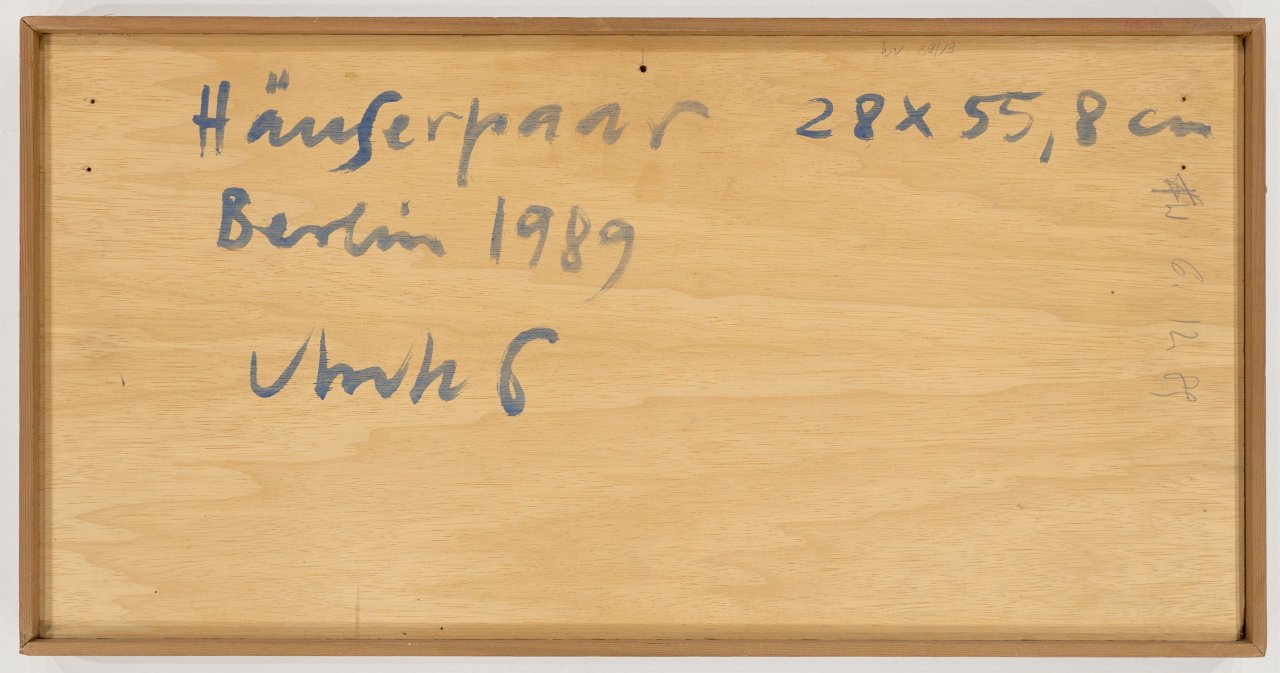 WV 89/13
Häuserpaar 28 x 55,8 cm
Berlin 1989
6. 12 89